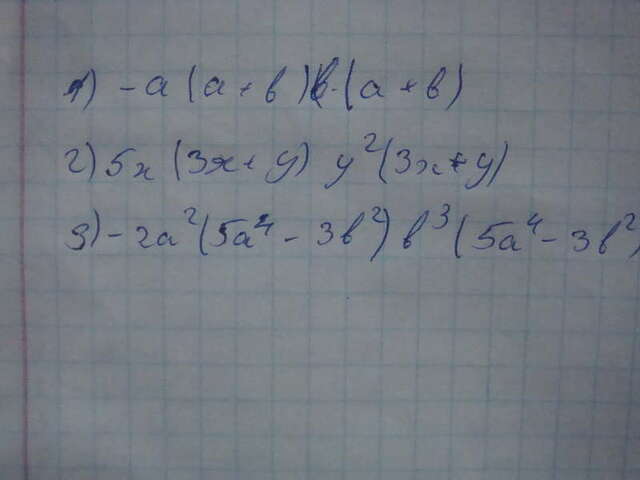 1) -a(a+b)b·(a+b)
2) 5x(3x+y) y²(3x+y)
3) -2a²(5a⁴-3b²) b³(5a⁴-3b²)